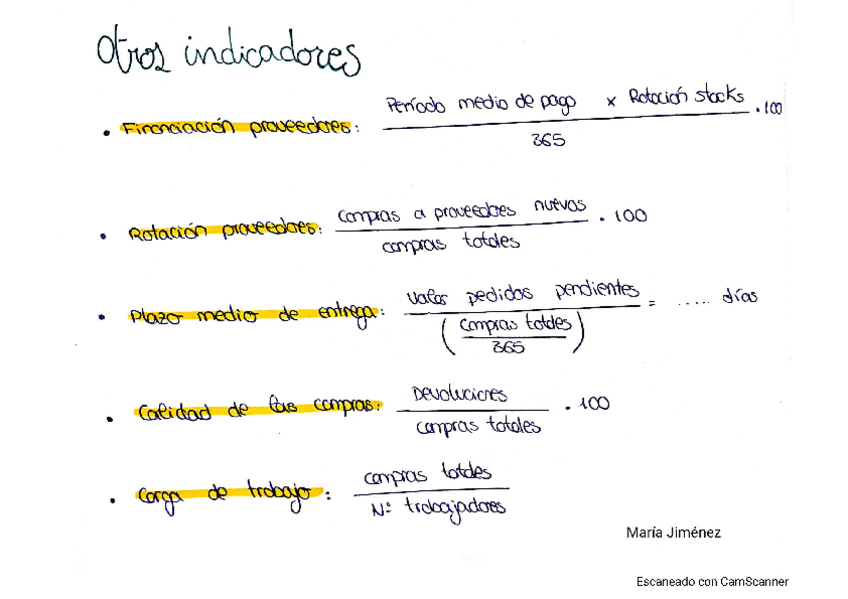 Otros indicadores
• Financiación proveedores: Período medio de pago x Rotación stocks . 100
365
• Rotación proveedores: compras a proveedores nuevos . 100
compras totales
• Plazo medio de entrega: Valor pedidos pendientes = ..... días
(compras totales)
365
• Calidad de las compras: Devoluciones . 100
compras totales
• Carga de trabajo: compras totales
Nº trabajadores
María Jiménez
Escaneado con CamScanner